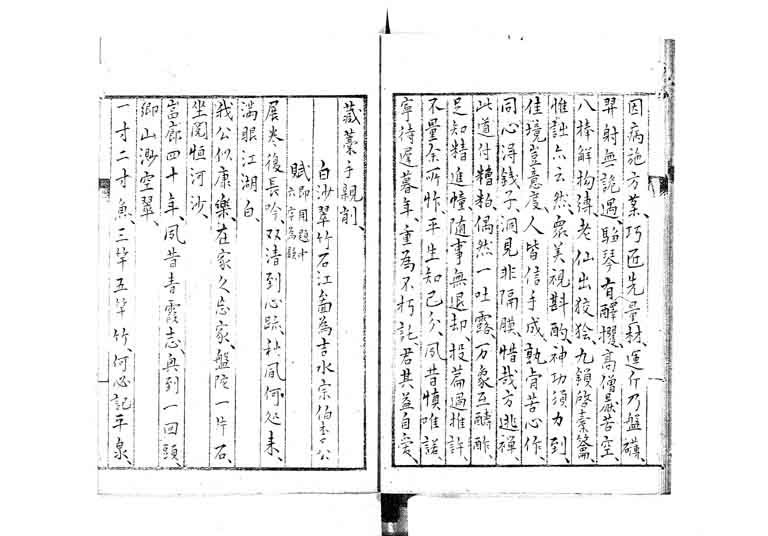 因病施方葉巧匠先量材運斤乃盤礴、
羿射無詭遇、騶琴有醳攫、高僧嚴苦空、
八棒解拘縛老仙出狡獪、九鎖啓秦籥、
惟詘亦云然、衆美視斟酌、神功須力到、
佳境豈意度、人皆信手成、孰肯苦心作、
同心得錢子、洞見非隔膜惜哉方逃禪
此道付糟粕偶然一吐露、万象互酬酢
足知精進幢隨事無退却、投篇過推許、
不量余所作、平生知己久、夙昔慎唯諾、
寧待遲暮年、重為不朽託、君其益自愛、
藏藁手親削、
白沙翠竹石江畵為吉水宗伯李公
賦即用題中
六字為韻
展卷復長吟、双清到心跡、秋風何処来、
滿眼江湖白、
我公似康樂在家久忘家、盤陀一片石、
坐閱恒河沙、
嵓廊四十年夙昔青霞志、興到一回頭、
鄉山渺空翠、
一寸二寸魚、三竿五竿竹、何必記平泉、